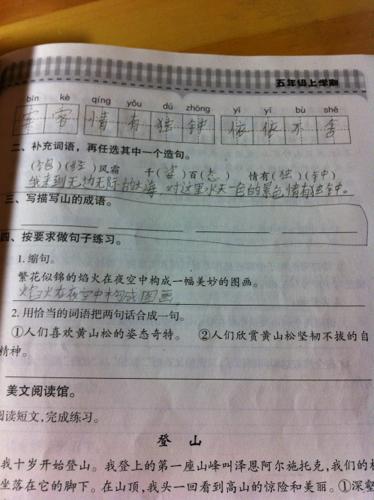 五年级上学期
bīn kè qíng yǒu dú zhōng yī yī bù shě
宾 客 情 有 独 钟 依 依 不 舍
二、补充词语,再任选其中一个造句。
(饱)(经)风霜 千(姿)百(态) 情有(独)(钟)
我来到无边无际的大海,对这里水天一色的景色情有独钟。
三、写描写山的成语。
四、按要求做句子练习。
1. 缩句。
繁花似锦的焰火在夜空中构成一幅美妙的图画。
焰火在夜空中构成图画
2. 用恰当的词语把两句话合成一句。
①人们喜欢黄山松的姿态奇特。 ②人们欣赏黄山松坚韧不拔的自
精神。
美文阅读馆。
阅读短文,完成练习。
登 山
我十岁开始登山。我登上的第一座山峰叫泽恩阿尔施托克,我们的村
坐落在它的脚下。在山顶,我头一回看到高山的惊险和美丽。①深壑